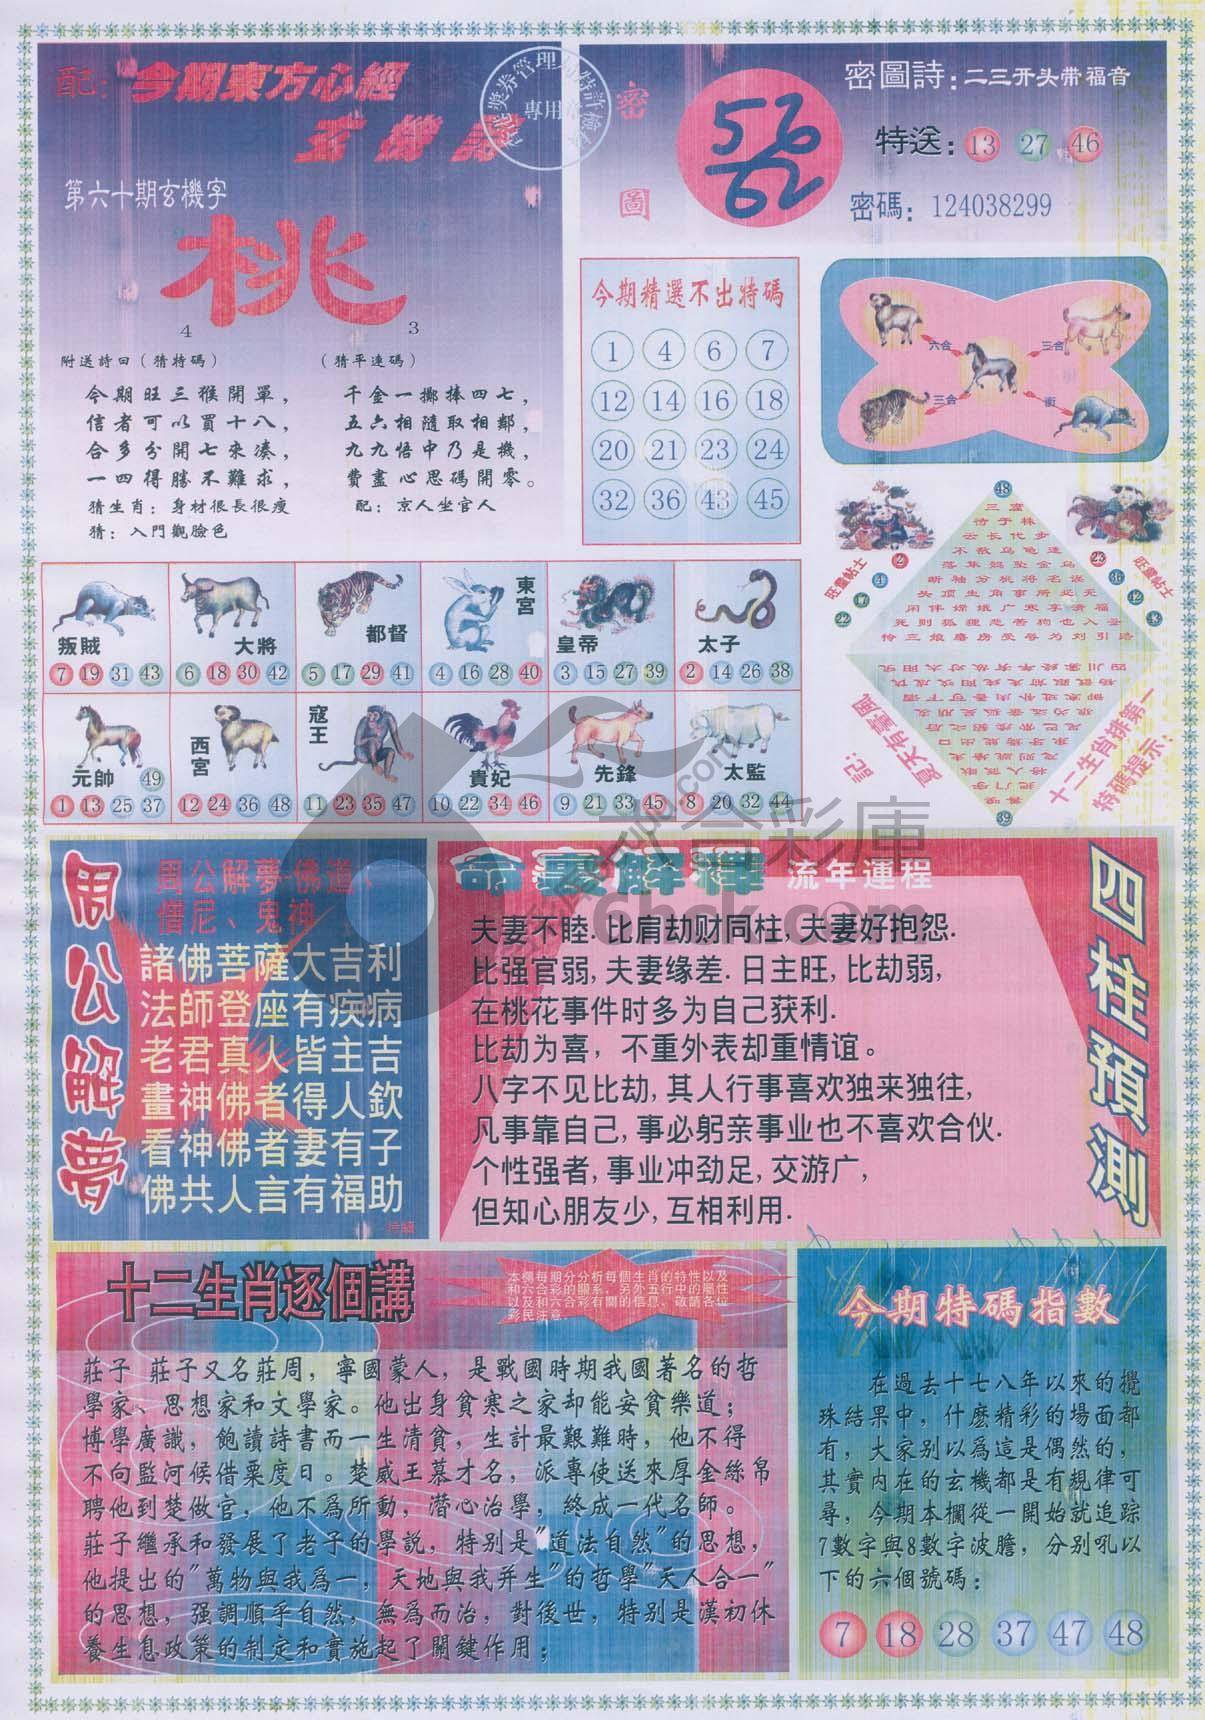 配：今期東方心經
玄機
第六十期玄機字
桃
4
3
附送詩曰（猜特碼）
今期旺三猴開單，
信者可以買十八，
合多分開七來湊，
一四得勝不難求，
猜生肖：身材很長很瘦
猜：入門觀臉色
（猜平連碼）
千金一擲捧四七，
五六相隨取相鄰，
九九悟中乃是機，
費盡心思碼開零。
配：京人坐官人
獎券管理
專用
密
圖
密圖詩：二三开头带福音
特送：13 27 46
密碼：124038299
今期精選不出特碼
1 4 6 7
12 14 16 18
20 21 23 24
32 36 43 45
六合
三合
三合
衝
48
三富
待于株
云长代步
不敌乌龟速
落难鹅坠金乌
断袖分桃将名误
头顶生角事所必无
闲伴嫦娥广寒享清福
旺靈帖士
2
4
22
旺靈帖士
23
36
42
39
記：夏天有臺風
十二生肖排第一
特碼提示：
叛賊
7 19 31 43
大將
6 18 30 42
都督
5 17 29 41
東宮
4 16 28 40
皇帝
3 15 27 39
太子
2 14 26 38
元帥 49
1 13 25 37
西宮
12 24 36 48
寇王
11 23 35 47
貴妃
10 22 34 46
先鋒
9 21 33 45
太監
8 20 32 44
六合彩庫
6hck.com
周公解夢
周公解夢-佛道、
僧尼、鬼神
諸佛菩薩大吉利
法師登座有疾病
老君真人皆主吉
畫神佛者得人欽
看神佛者妻有子
佛共人言有福助
待續
命裏解釋 流年運程
四柱預測
夫妻不睦.比肩劫财同柱,夫妻好抱怨.
比强官弱,夫妻缘差.日主旺,比劫弱,
在桃花事件时多为自己获利.
比劫为喜，不重外表却重情谊。
八字不见比劫,其人行事喜欢独来独往,
凡事靠自己,事必躬亲事业也不喜欢合伙.
个性强者,事业冲劲足,交游广,
但知心朋友少,互相利用.
十二生肖逐個講
本欄每期分分析每個生肖的特性以及
和六合彩的關系，另外五行中的屬性
以及和六合彩有關的信息，敬請各位
彩民注意.
莊子 莊子又名莊周，寧國蒙人，是戰國時期我國著名的哲
學家、思想家和文學家。他出身貧寒之家却能安貧樂道；
博學廣識，飽讀詩書而一生清貧，生計最艱難時，他不得
不向監河候借粟度日。楚威王慕才名，派專使送來厚金絲帛
聘他到楚做官，他不爲所動，潛心治學，終成一代名師。
莊子繼承和發展了老子的學説，特别是"道法自然"的思想，
他提出的"萬物與我爲一，天地與我并生"的哲學"天人合一"
的思想，强調順乎自然，無爲而治，對後世，特别是漢初休
養生息政策的制定和實施起了關鍵作用；
今期特碼指數
在過去十七八年以來的攪
珠結果中，什麽精彩的場面都
有，大家别以爲這是偶然的，
其實内在的玄機都是有規律可
尋，今期本欄從一開始就追踪
7數字與8數字波膽，分别吼以
下的六個號碼：
7 18 28 37 47 48